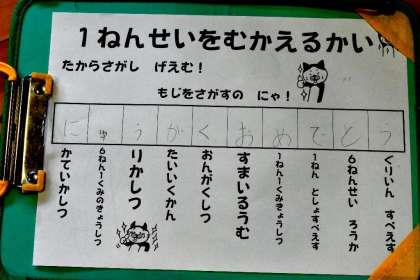 1ねんせいをむかえるかい
たからさがし　げえむ！
もじをさがすの　にゃ！
にゅうがくおめでとう
かていかしつ
6ねん1くみのきょうしつ
りかしつ
たいいくかん
おんがくしつ
すまいるうむ
1ねん1くみきょうしつ
1ねん　としょすぺえす
6ねんせい　ろうか
ぐりいん　すぺえす